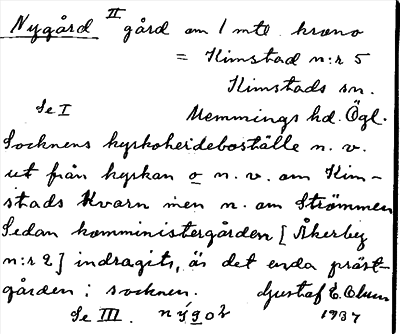 Nygård II gård om 1 mtl. krono
= Kimstad n:r 5
Kimstads sn.
Se I Memmings hd. Ögl.
Socknens kyrkoherdeboställe n. v.
ut från kyrkan o n. v. om Kim-
stads Kvarn men n. om Strömmen
Sedan komministergården [Åkerby
n:r 2] indragits, äs det enda präst-
gården i socknen. Gustaf E. Olsson
Se III. 1937